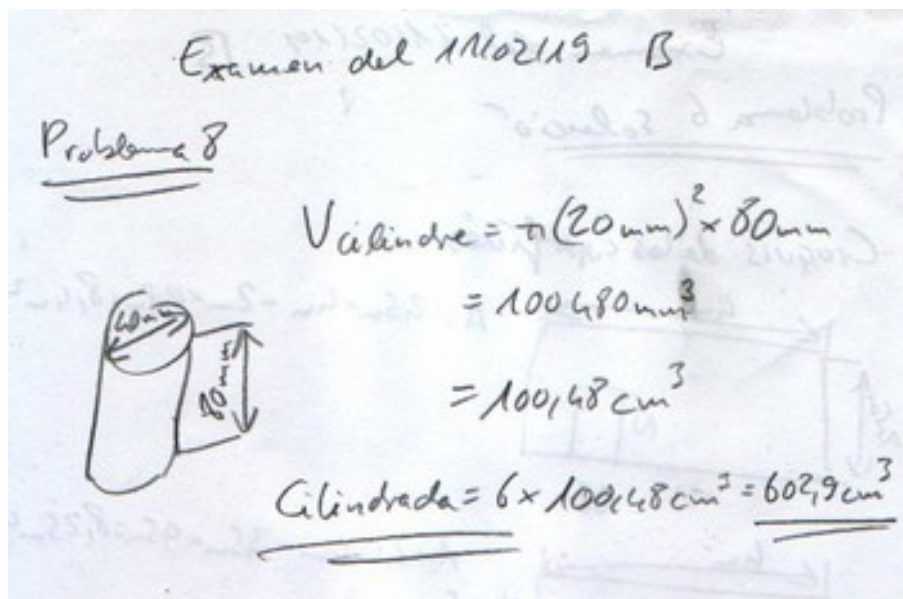 Examen del 11/02/19 B
Problema 8
V cilindre = π(20mm)² × 80mm
= 100480mm³
= 100,48 cm³
40mm
80mm
Cilindrada = 6 × 100,48cm³ = 602,9cm³